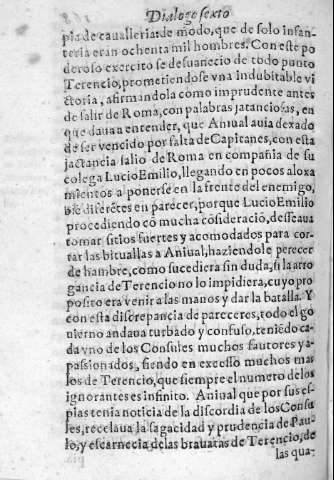 Dialogo sexto
pia de caualleria de modo, que de solo infan-
teria eran ochenta mil hombres. Con este po
deroso exercito se desuanecio de todo punto
Terencio, prometiendose vna indubitable vi
ctoria, afirmandola como imprudente antes
de salir de Roma, con palabras jatanciosas, en
que daua a entender, que Anibal auia dexado
de ser vencido por falta de Capitanes, con esta
jactancia salio de Roma en compañia de su
colega Lucio Emilio, llegando en pocos aloxa
mientos a ponerse en la frente del enemigo,
biẽ diferẽtes en parecer, porque Lucio Emilio
procediendo cõ mucha cõsideració, desseaua
tomar sitios fuertes y acomodados para cor-
tar las bituallas a Aniual, haziendole perecer
de hambre, como sucediera sin duda, si la arro
gancia de Terencio no lo impidiera, cuyo pro
posito era venir a las manos y dar la batalla. Y
con esta discrepancia de pareceres, todo el go
uierno andaua turbado y confuso, teniẽdo ca-
da vno de los Consules muchos fautores y a-
passionados, siendo en excesso muchos mas
los de Terencio, que siempre el numero de los
ignorantes es infinito. Aniual que por sus es-
pias tenia noticia de la discordia de los Consu
les, recelaua la sagacidad y prudencia de Pau-
lo, y escarnecia de las brauatas de Terencio, de
las qua-